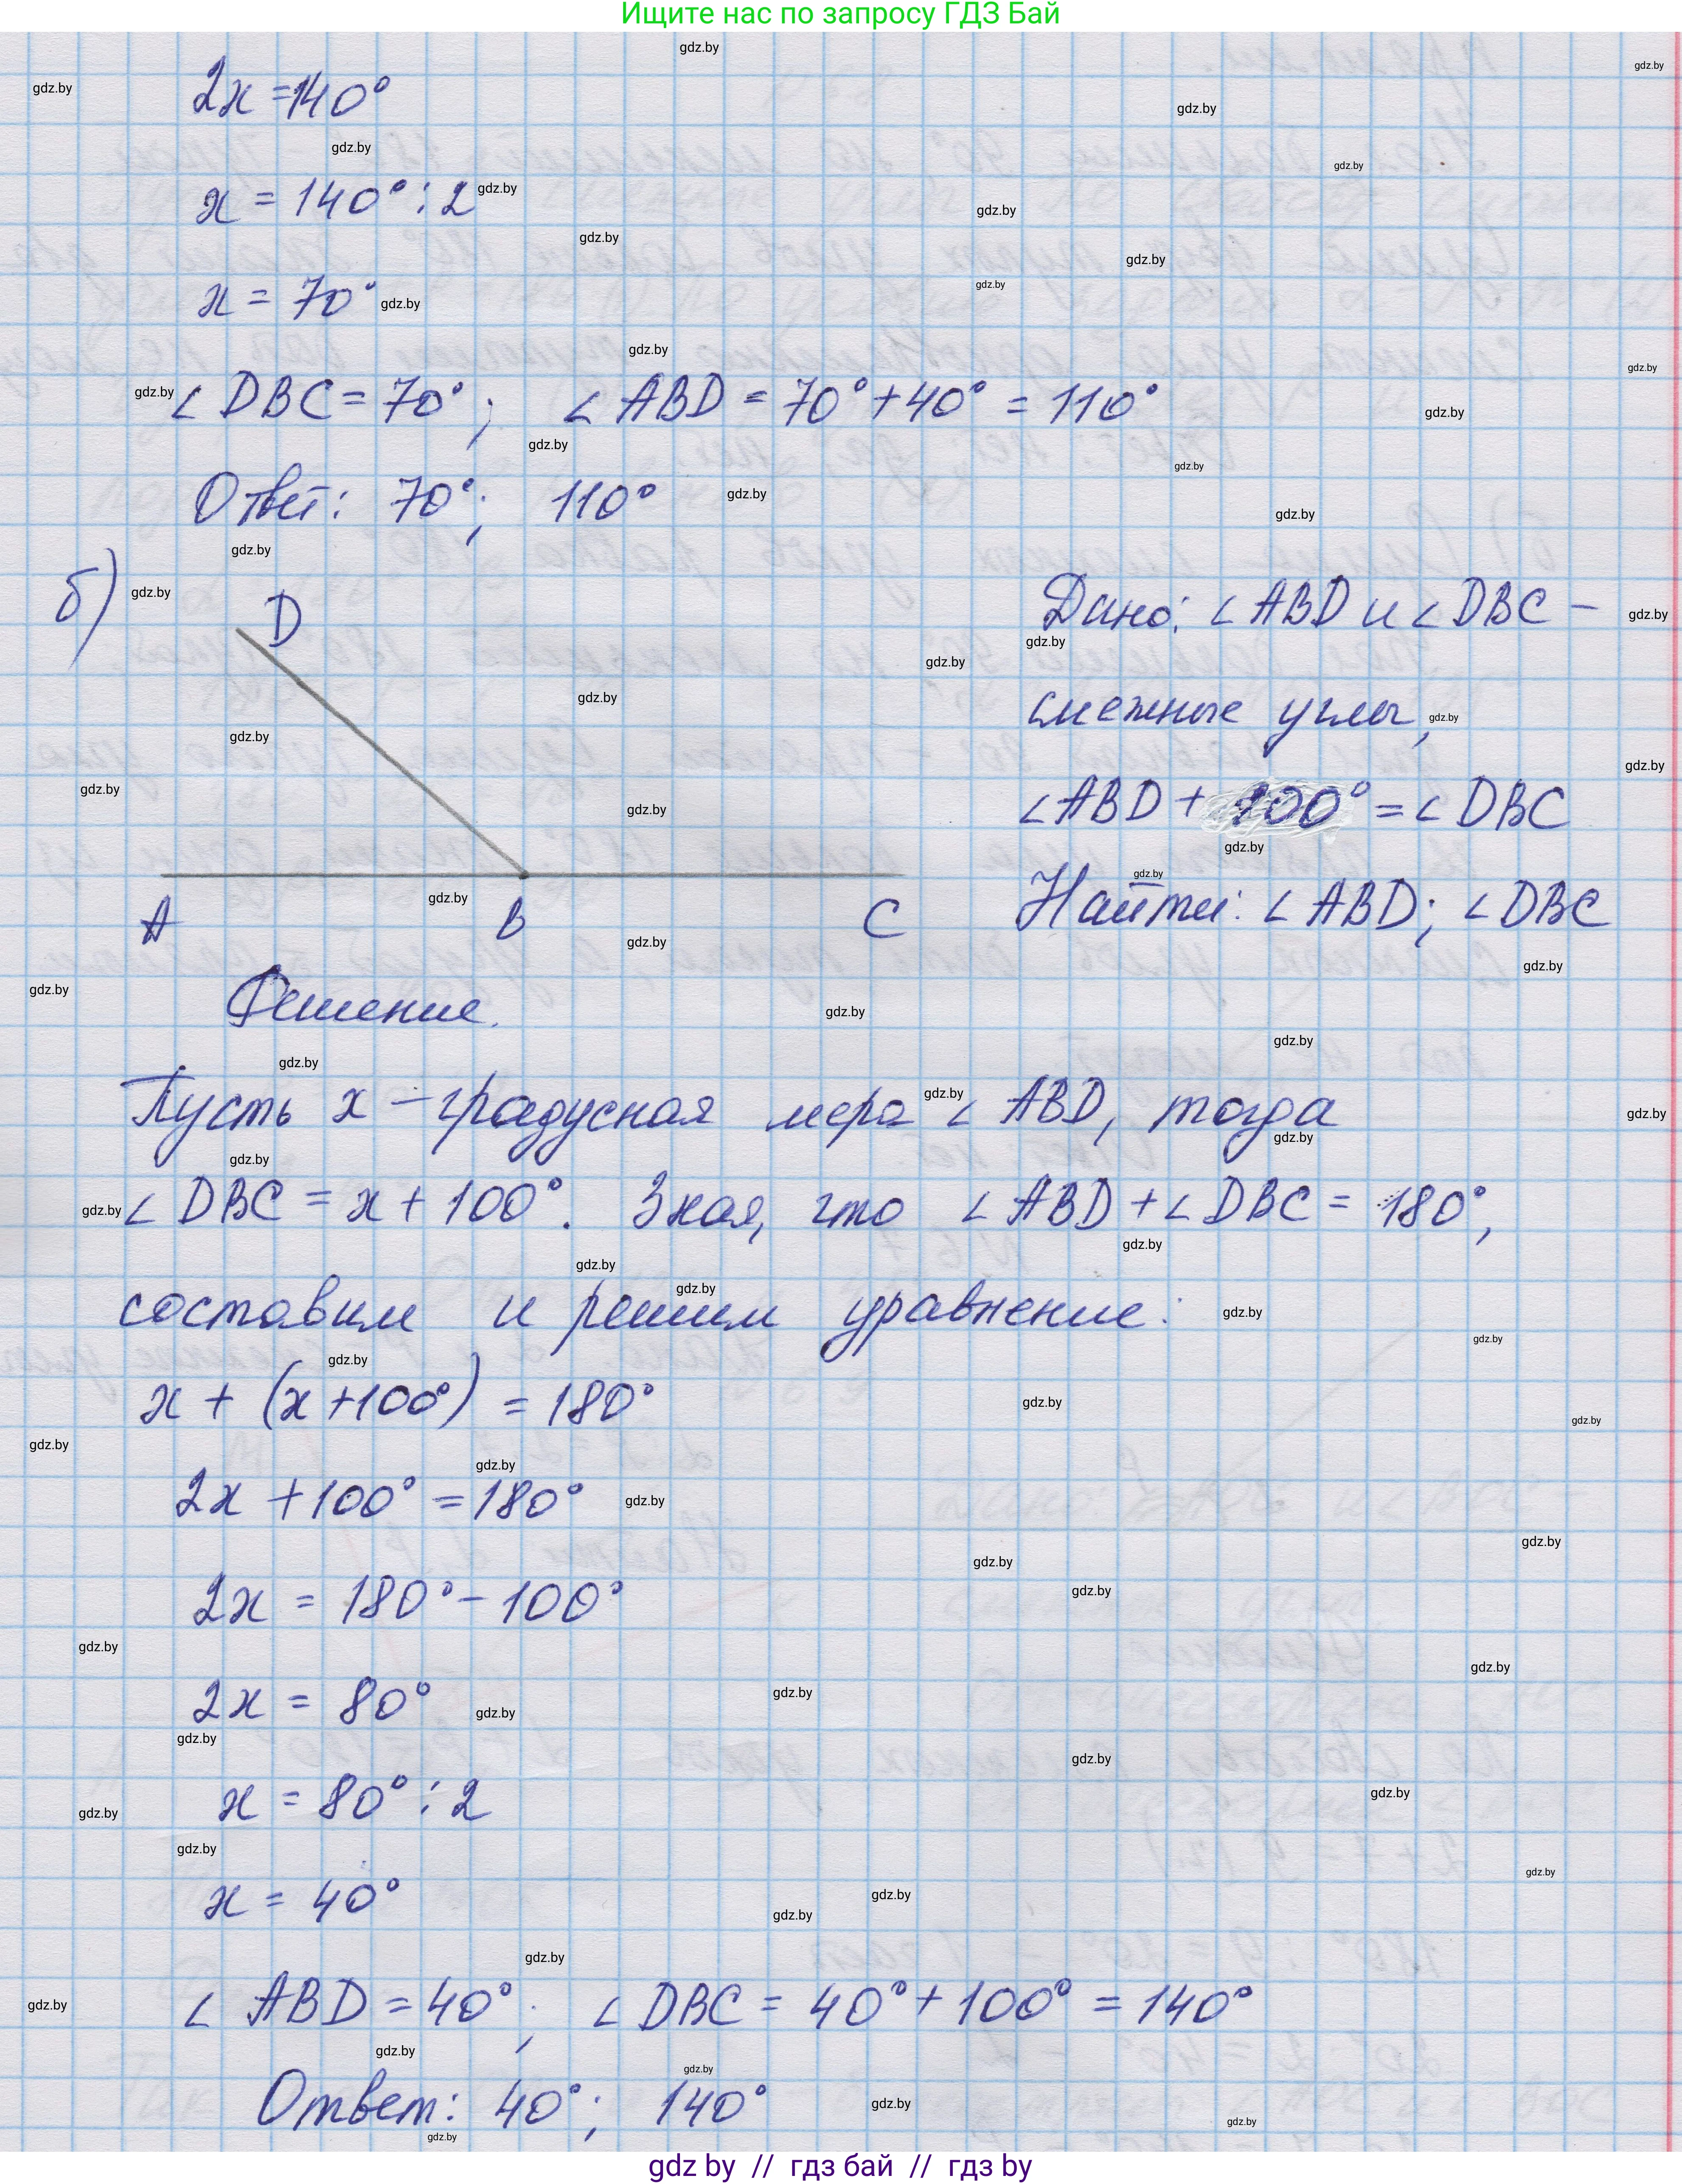 Ищите нас по запросу ГДЗ Бай
2x = 140°
x = 140° : 2
x = 70°
∠DBC = 70°; ∠ABD = 70° + 40° = 110°
Ответ: 70°; 110°
б)
D
A
B
C
Дано: ∠ABD и ∠DBC –
смежные углы,
∠ABD + 100° = ∠DBC
Найти: ∠ABD; ∠DBC
Решение.
Пусть x – градусная мера ∠ABD, тогда
∠DBC = x + 100°. Зная, что ∠ABD + ∠DBC = 180°,
составим и решим уравнение:
x + (x + 100°) = 180°
2x + 100° = 180°
2x = 180° – 100°
2x = 80°
x = 80° : 2
x = 40°
∠ABD = 40°; ∠DBC = 40° + 100° = 140°
Ответ: 40°; 140°
gdz by // гдз бай // гдз by